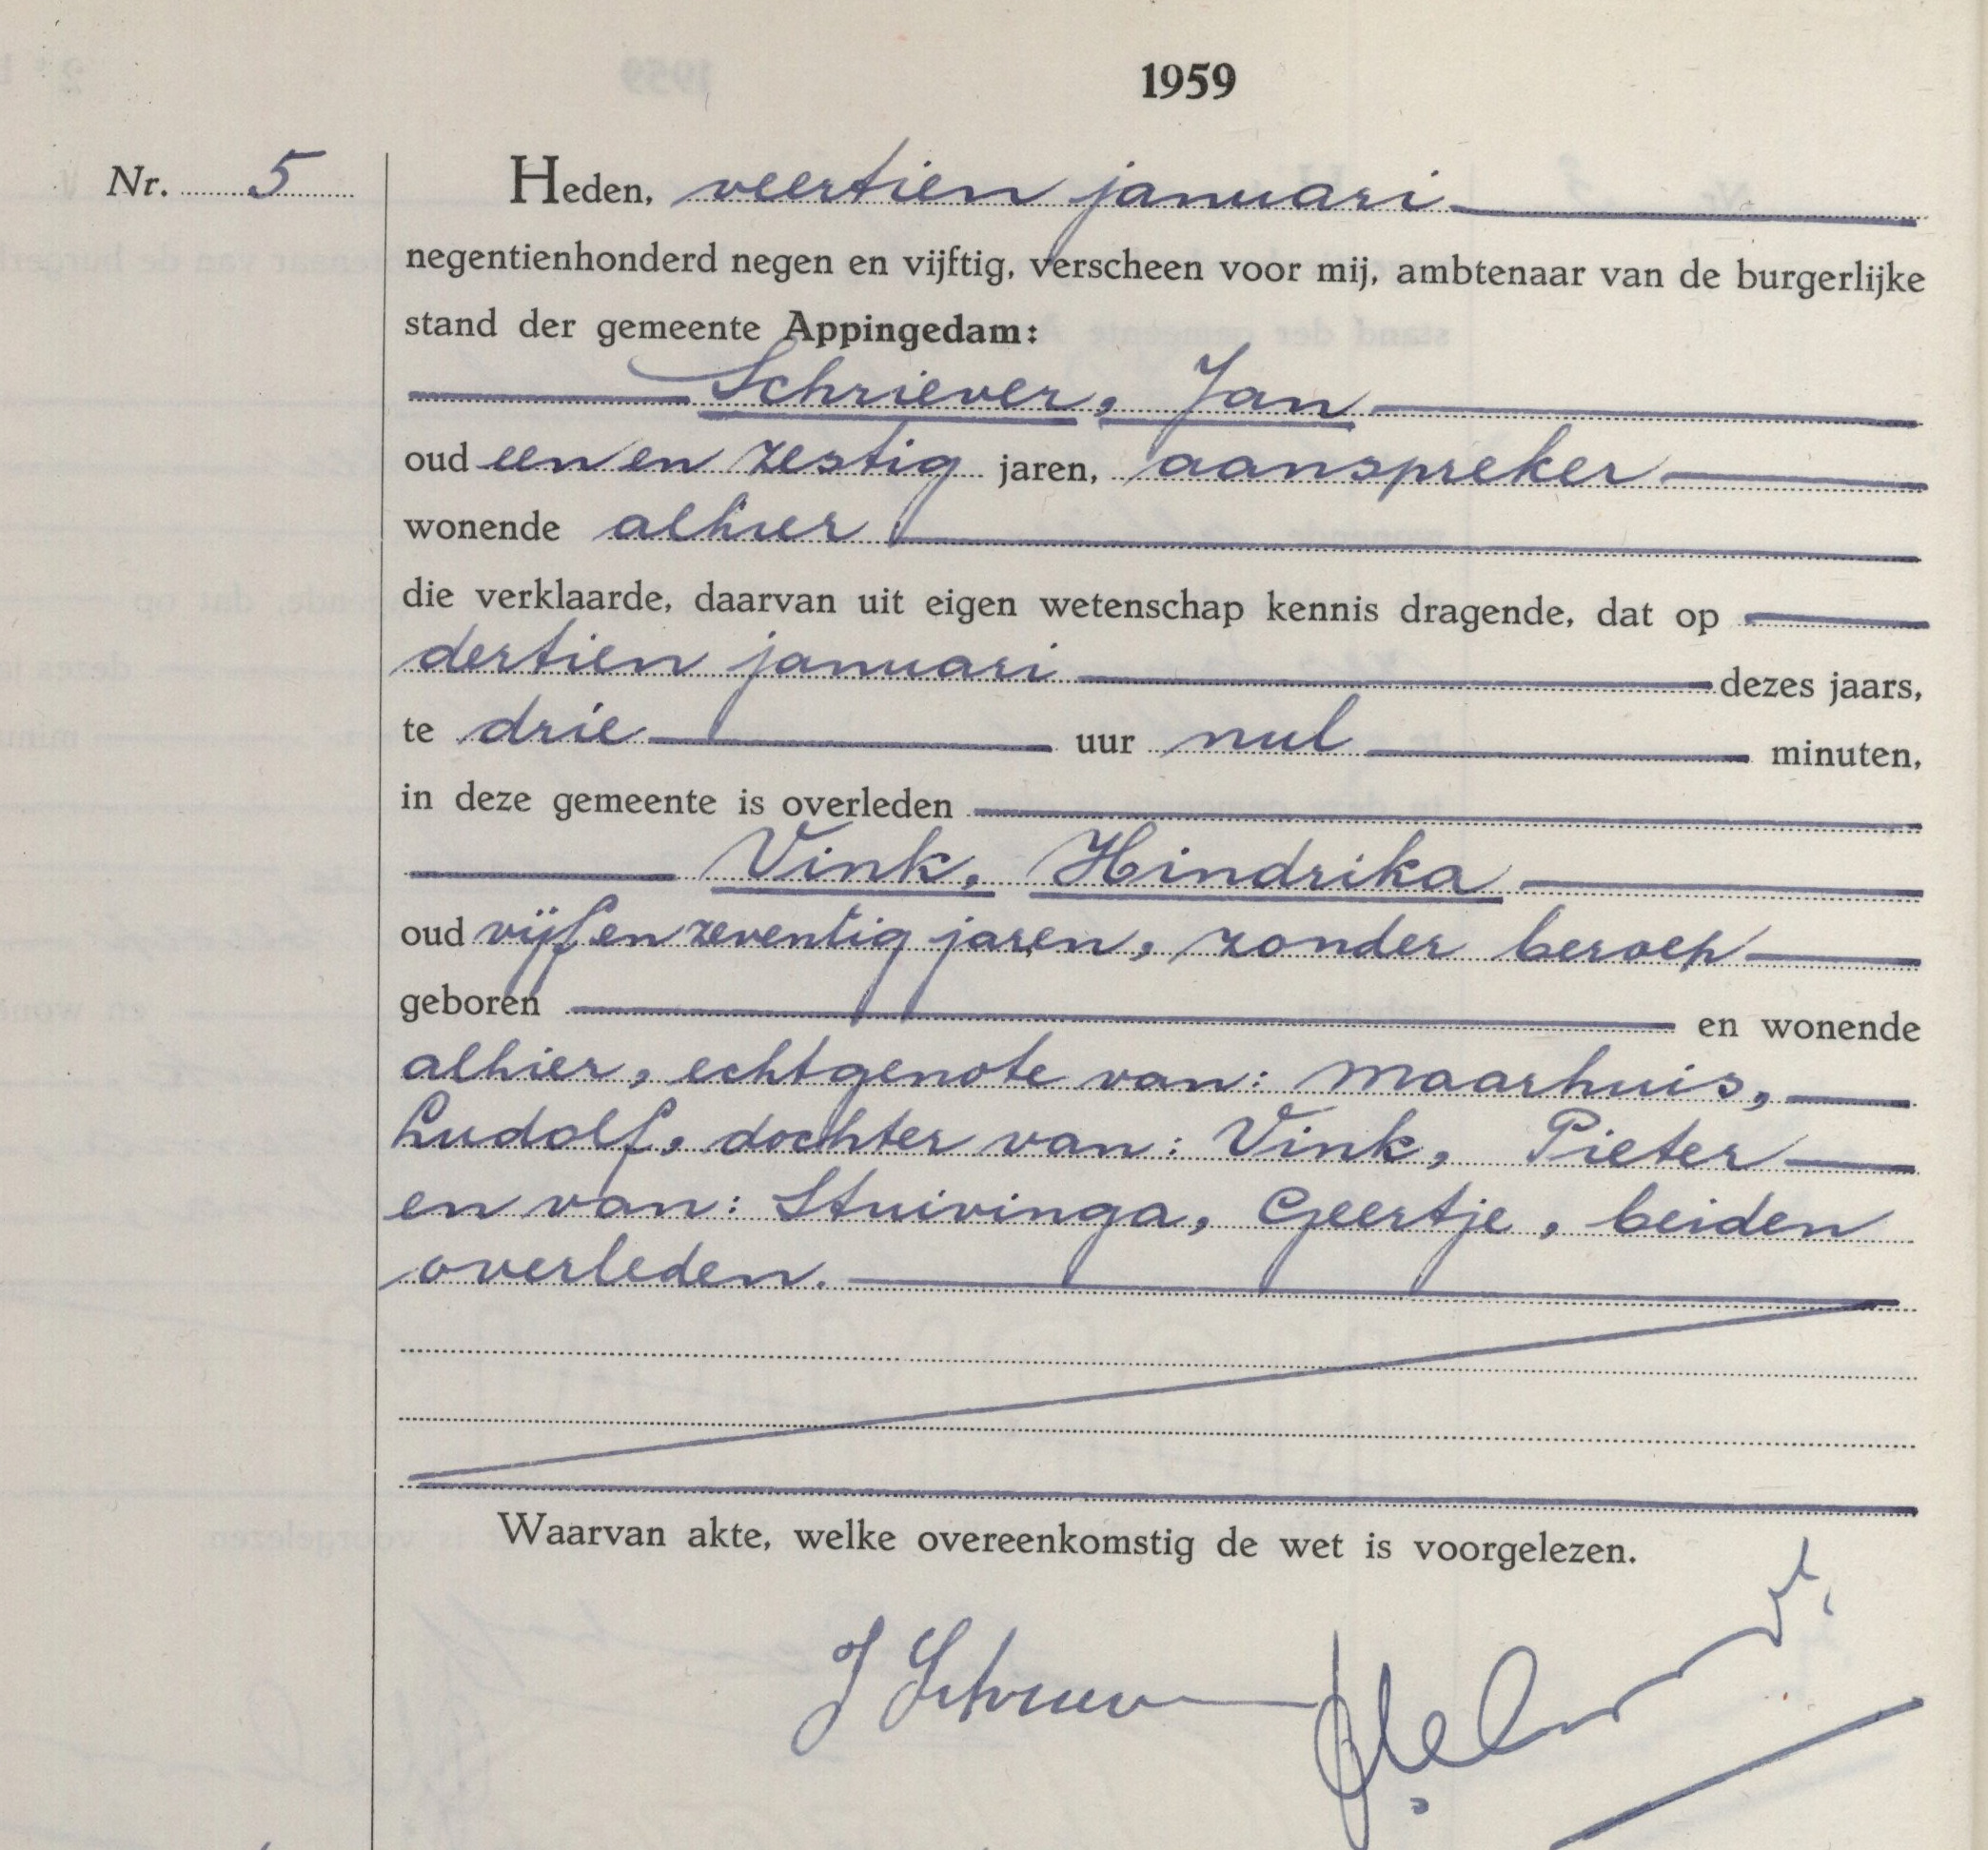 1959
Nr. 5
Heden, veertien januari
negentienhonderd negen en vijftig, verscheen voor mij, ambtenaar van de burgerlijke
stand der gemeente Appingedam:
Schriever, Jan
oud een en zestig jaren, aanspreker
wonende alhier
die verklaarde, daarvan uit eigen wetenschap kennis dragende, dat op
dertien januari dezes jaars,
te drie uur nul minuten,
in deze gemeente is overleden
Vink, Hindrika
oud vijf en zeventig jaren, zonder beroep
geboren en wonende
alhier, echtgenote van: Maarhuis,
Ludolf, dochter van: Vink, Pieter
en van: Stuivinga, Geertje, beiden
overleden.
Waarvan akte, welke overeenkomstig de wet is voorgelezen.
J Schriever